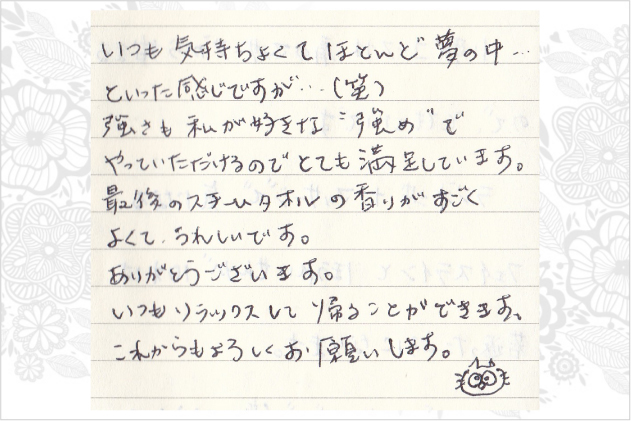 いつも気持ちよくてほとんど夢の中…
といった感じですが…(笑)
強さも私が好きな〝強め〟で
やっていただけるのでとても満足しています。
最後のスチームタオルの香りがすごく
よくて、うれしいです。
ありがとうございます。
いつもリラックスして帰ることができます。
これからもよろしくお願いします。